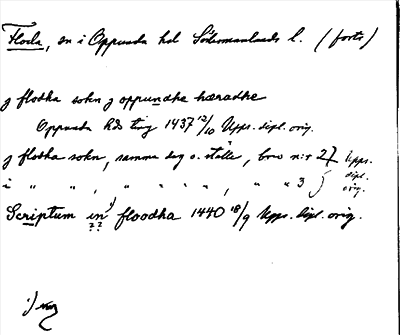 Floda, sn i Oppunda hd Södermanlands l. (forts)
j flodha sokn j oppundha hæradhe
Oppunda hds ting 1437 12/10 Upps. dipl. orig.
j flodha sokn, samma dag o. ställe, brev nr 27 Upps.
i " ", " " " ", " " 3 } dipl.
orig.
Scriptum in 1) floodha 1440 18/9 Upps. dipl. orig.
??
1)